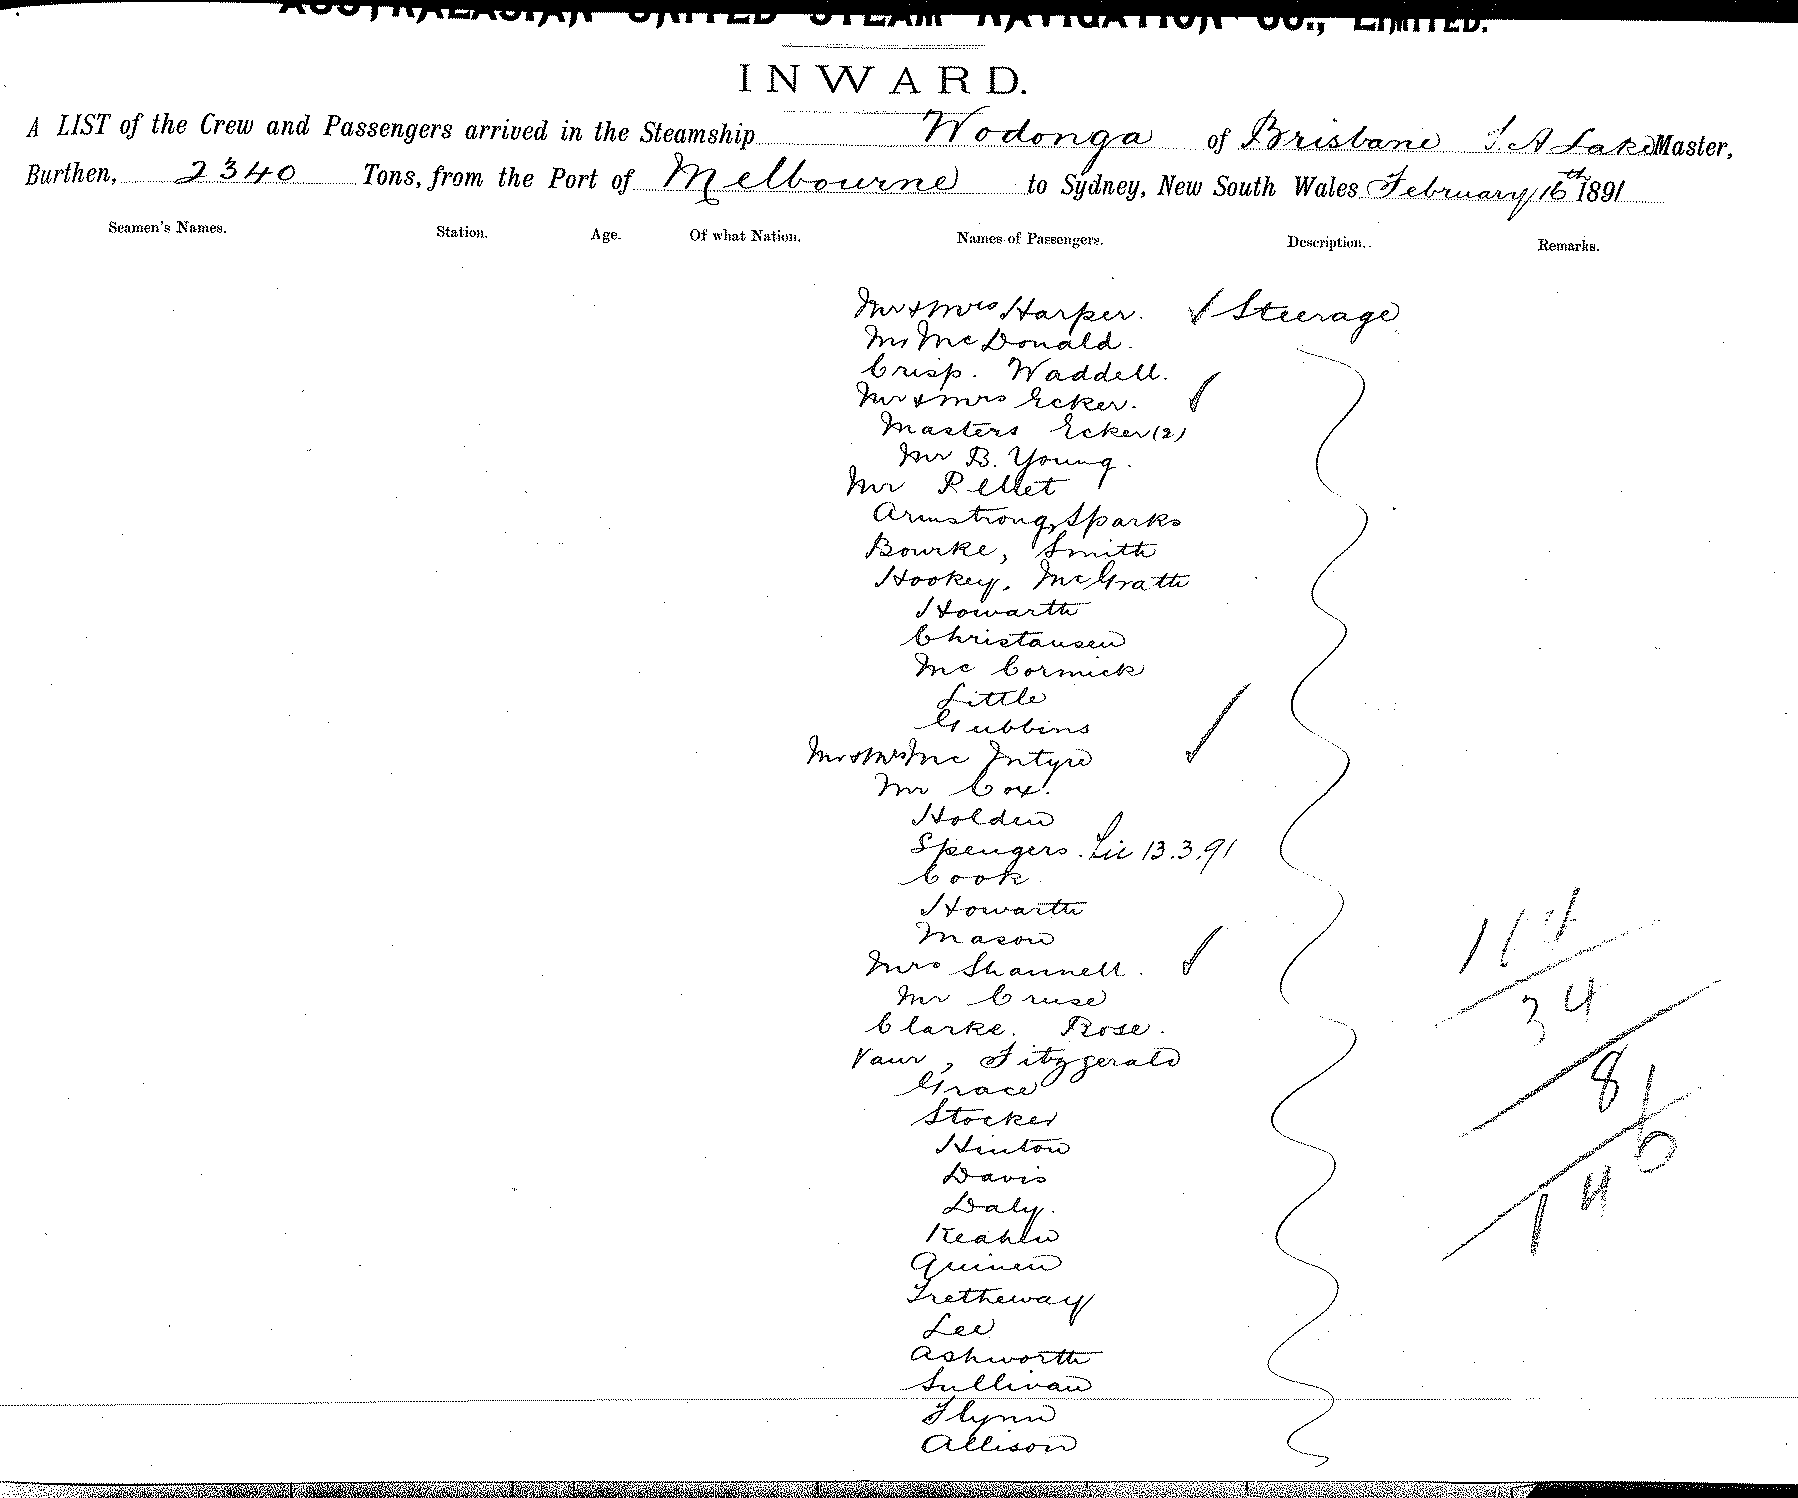 AUSTRALASIAN UNITED STEAM NAVIGATION CO., LIMITED.
INWARD.
A LIST of the Crew and Passengers arrived in the Steamship Wodonga of Brisbane S A Lake Master,
Burthen, 2340 Tons, from the Port of Melbourne to Sydney, New South Wales February 16th 1891
Seamen's Names. Station. Age. Of what Nation. Names of Passengers. Description. Remarks.
Mr & Mrs Harper. Steerage
Mr McDonald.
Crisp. Waddell.
Mr & Mrs Ecker.
Masters Ecker (2)
Mr B. Young.
Mr Pellet
Armstrong, Sparks
Bourke, Smith
Hookey, McGrath
Howarth
Christausen
Mc Cormick
Little
Gubbins
Mr & Mrs Mc Intyre
Mr Cox.
Holden
Spengers. Lic 13.3.91
Cook
Howarth
Mason
Mrs Shannell.
Mr Cruse
Clarke. Rose.
Vaur, Fitzgerald
Grace
Stocker
Hinton
Davis
Daly.
Keahen
Quinen
Tretheway
Lee
Ashworth
Sullivan
Flynn
Allison
34
8
6
14